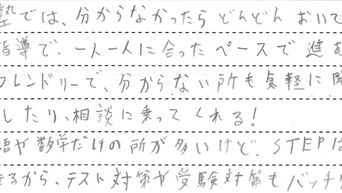 塾では、分からなかったら どんどん おいて
指導で、一人一人に合ったペースで 進む
フレンドリーで、分からない所も気軽に聞
したり、相談に乗ってくれる!
語や数学だけの所が多いけど、STEPは
きるから、テスト対策や受験対策もバッチリ